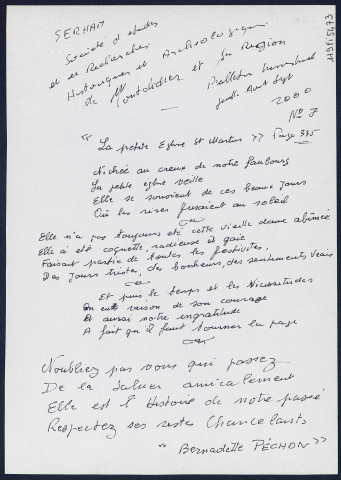 SERHAM
Société d'études
et de Recherches
Historiques et Archéologiques
de Montdidier et sa Région
Bulletin trimestriel
Juill Aout Sept
2000
N° 7
119FI5473
"La petite Eglise St Martin" Page 335
Nichée au creux de notre faubourg
La petite église veille
Elle se souvient de ces beaux jours
Où les rires fusaient au soleil
Elle n'a pas toujours été cette vieille dame abîmée
Elle a été coquette, radieuse et gaie
Faisant partie de toutes les festivités
Des jours tristes, des bonheurs, des sentiments vrais
Et puis le temps et les Vicissitudes
On eut raison de son courage
Et aussi notre ingratitude
A fait qu'il faut tourner la page
N'oubliez pas vous qui passez
De la saluer amicalement
Elle est l'Histoire de notre passé
Respectez ses restes Chancelants
"Bernadette PÉCHON"